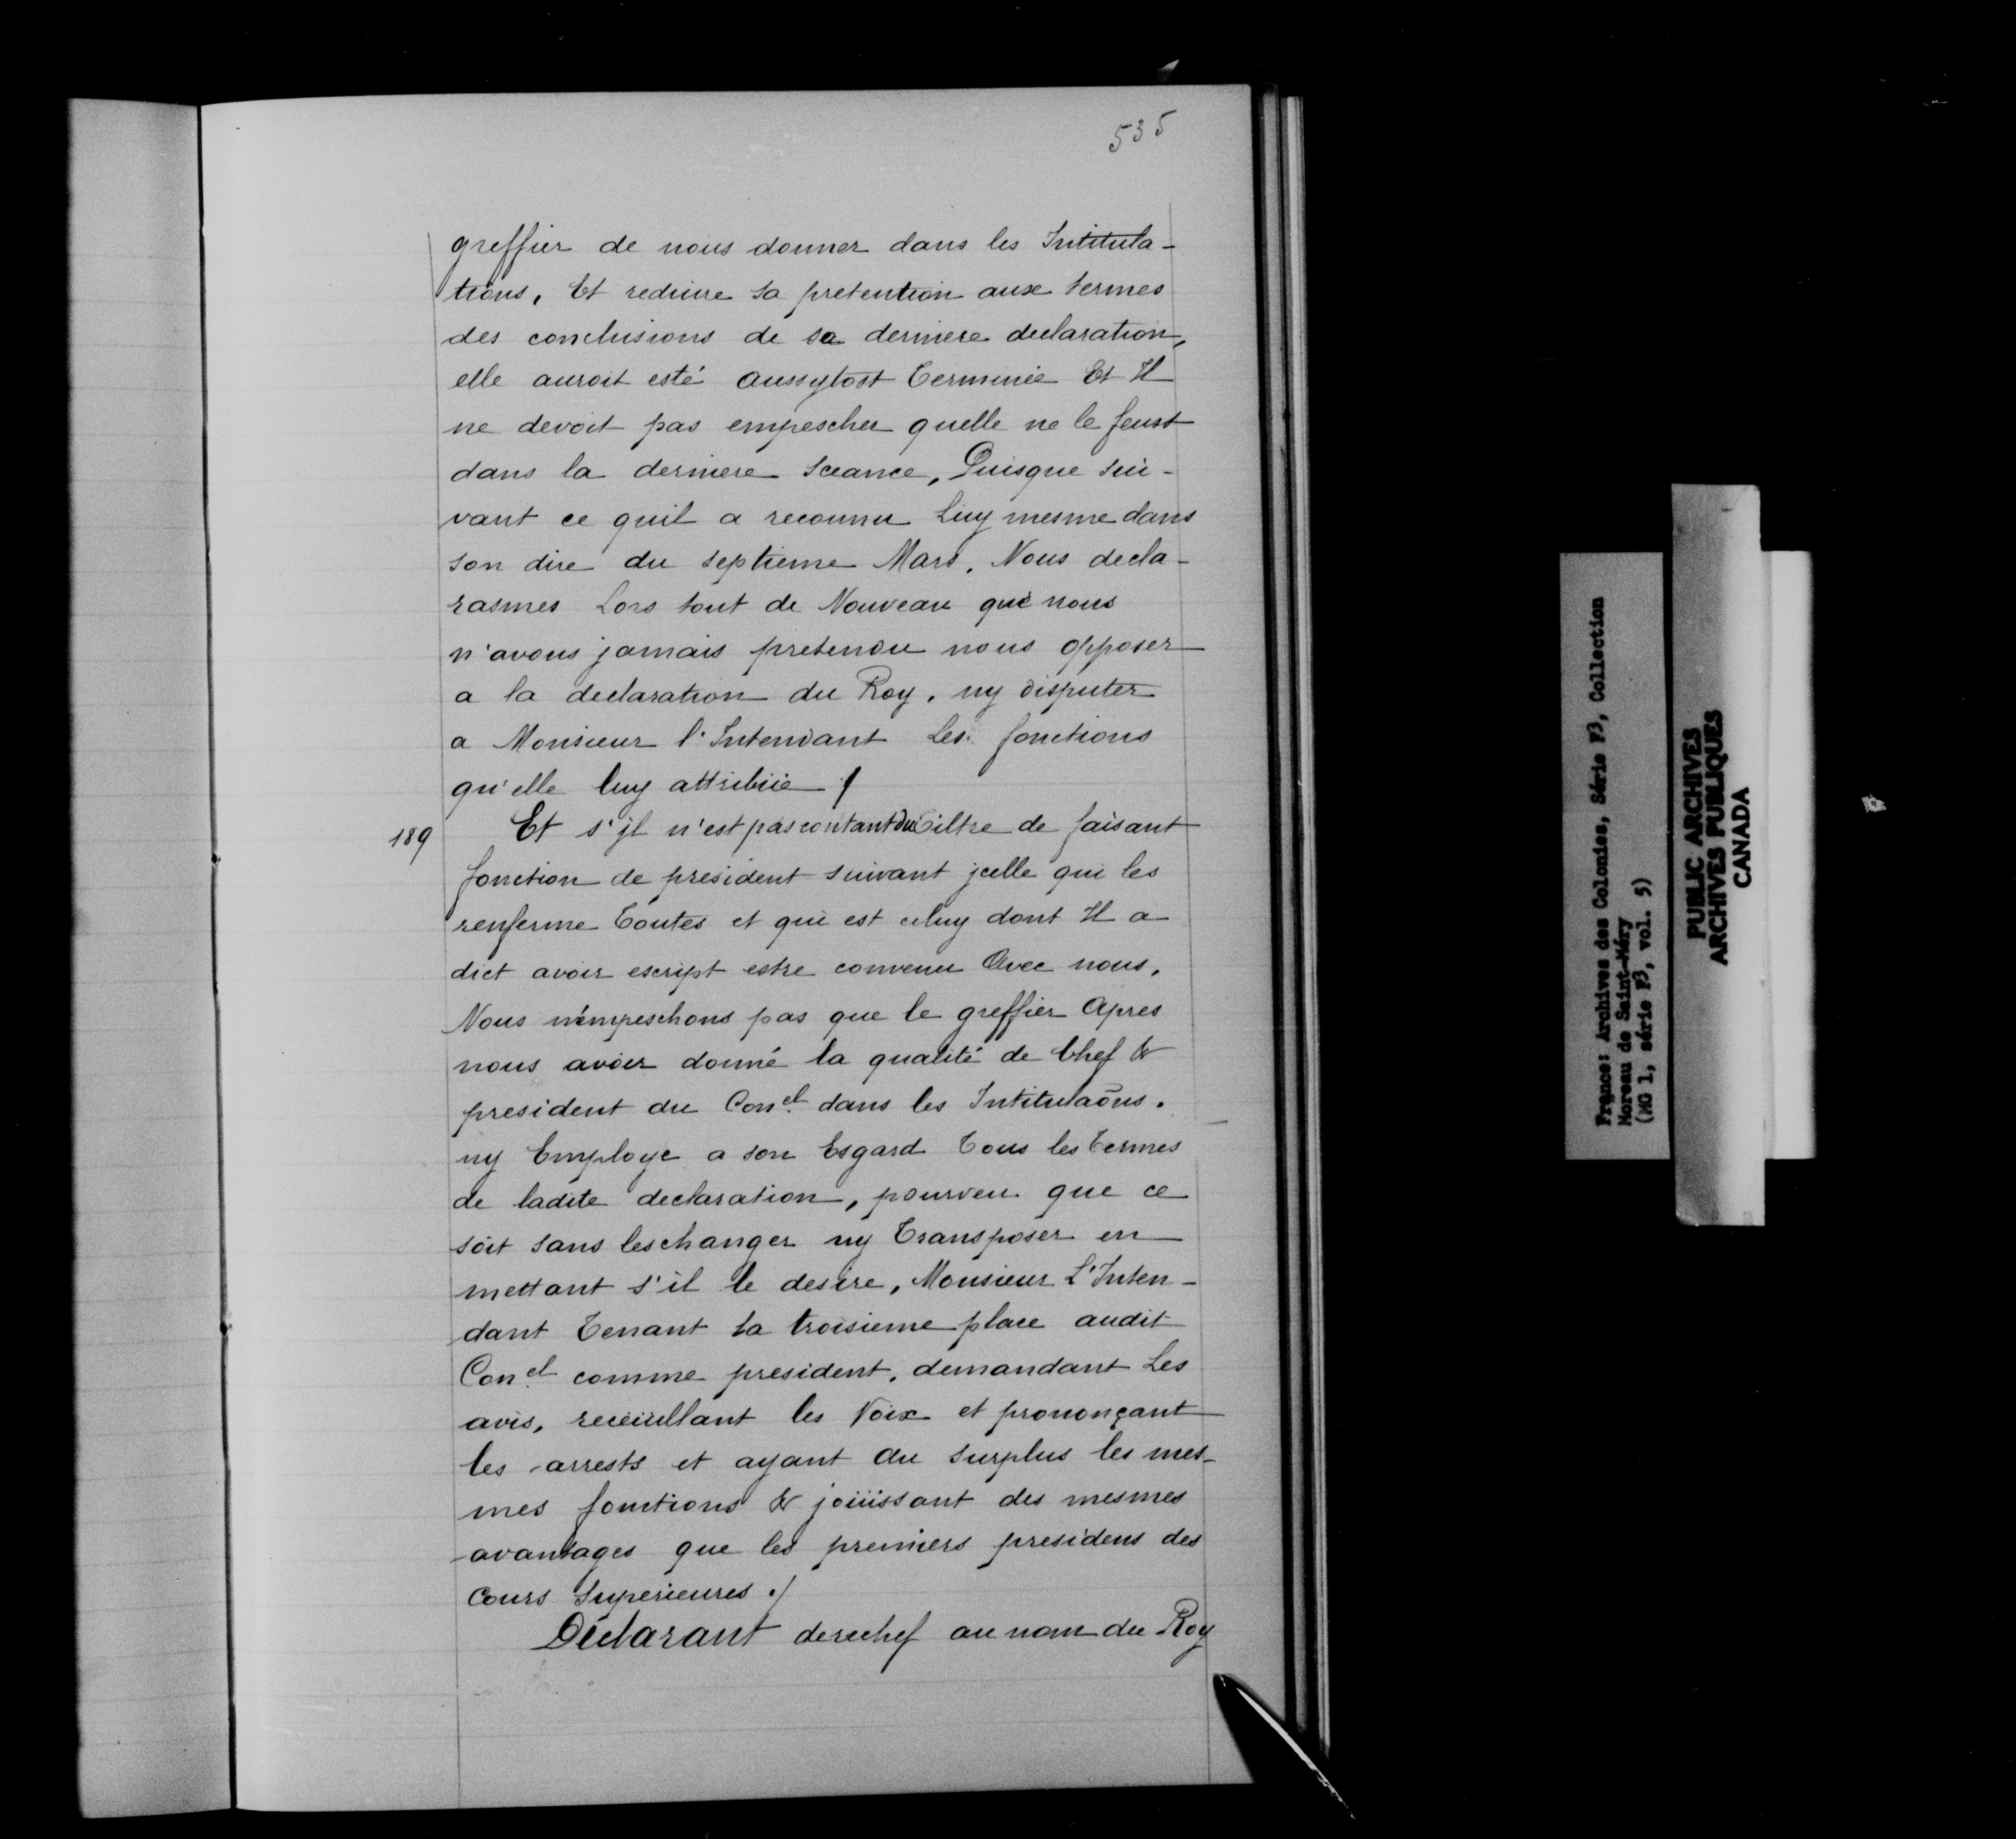 535
greffier de nous donner dans les Intitula-
tions, Et reduire sa pretention aux termes
des conclusions de sa derniere declaration,
elle auroit esté aussytost Terminée Et Il
ne devoit pas empescher quelle ne le feust
dans la derniere sceance, Puisque sui-
vant ce quil a reconnu Luy mesme dans
son dire du septieme Mars, Nous decla-
rasmes Lors tout de Nouveau que nous
n'avons jamais pretendu nous opposer
a la declaration du Roy, ny disputer
a Monsieur l'Intendant Les fonctions
qu'elle luy attribüe /
189
Et s'jl n'est pas contant du Tiltre de faisant
fonction de president suivant jcelle qui les
renferme Toutes et qui est celuy dont Il a
dict avoir escript estre convenu Avec nous,
Nous n'empeschons pas que le greffier Apres
nous avoir donné la qualité de Chef &
president du Con.el dans les Intitulaõns.
ny Employe a son Esgard Tous les Termes
de ladite declaration, pourveu que ce
soit sans les changer ny Transposer en
mettant s'il le desire, Monsieur L'Inten-
dant Tenant la troisieme place audit
Con.el comme president, demandant Les
avis, recüeillant les Voix et prononçant
les arrests et ayant au surplus les mes-
mes fonctions & joüissant des mesmes
avantages que les premiers presidens des
Cours Superieures ./
Déclarant derechef au nom du Roy
France: Archives des Colonies, Série F3, Collection
Moreau de Saint-Méry
(MG 1, série F3, vol. 5)
PUBLIC ARCHIVES
ARCHIVES PUBLIQUES
CANADA